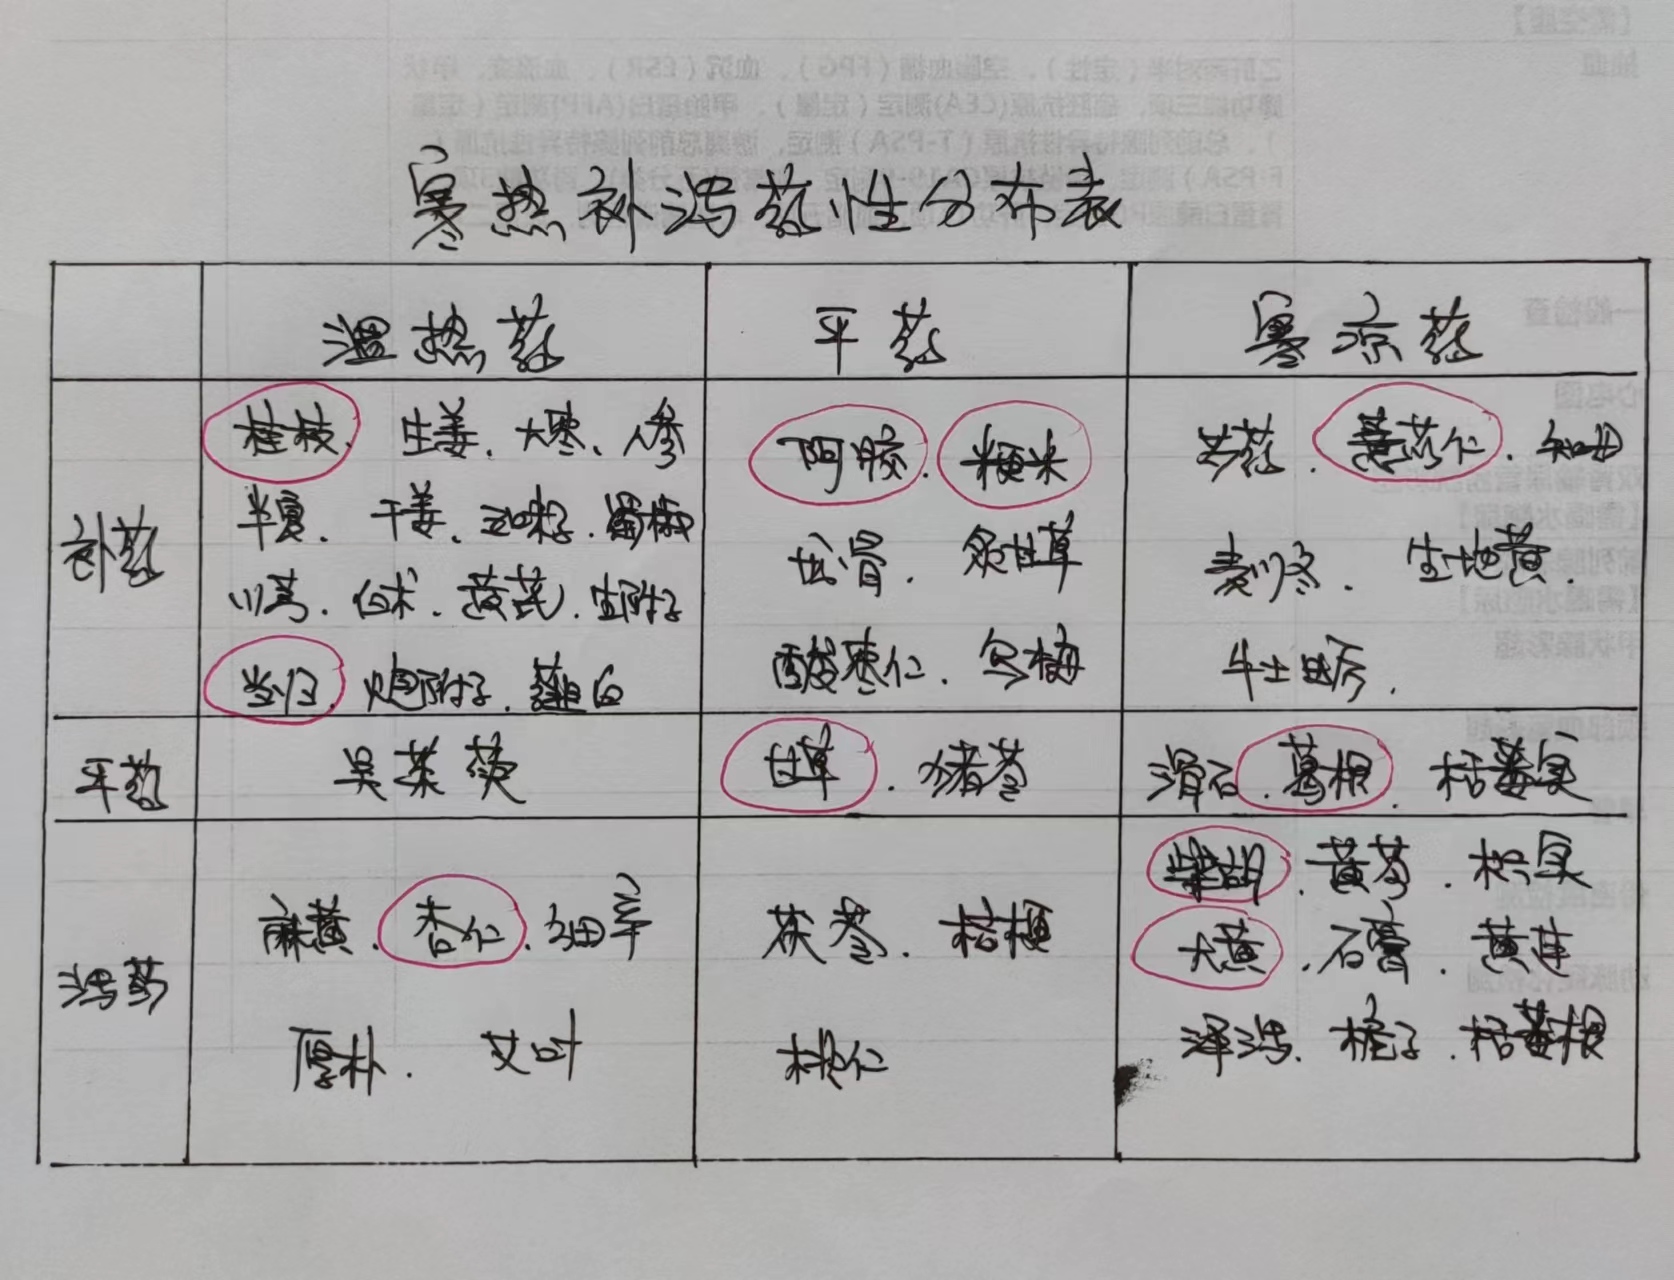 寒热补泻药性分布表
温热药 平药 寒凉药
补药
桂枝、生姜、大枣、人参
半夏、干姜、五味子、蜀椒
川芎、白术、黄芪、生附子
当归、炮附子、薤白
阿胶、粳米
龙骨、炙甘草
酸枣仁、乌梅
芍药、薏苡仁、知母
麦门冬、生地黄、
牡蛎、
平药
吴茱萸
甘草、猪苓
滑石、葛根、栝蒌实
泻药
麻黄、杏仁、细辛
厚朴、艾叶
茯苓、桔梗
桃仁
柴胡、黄芩、枳实
大黄、石膏、黄连
泽泻、栀子、栝蒌根